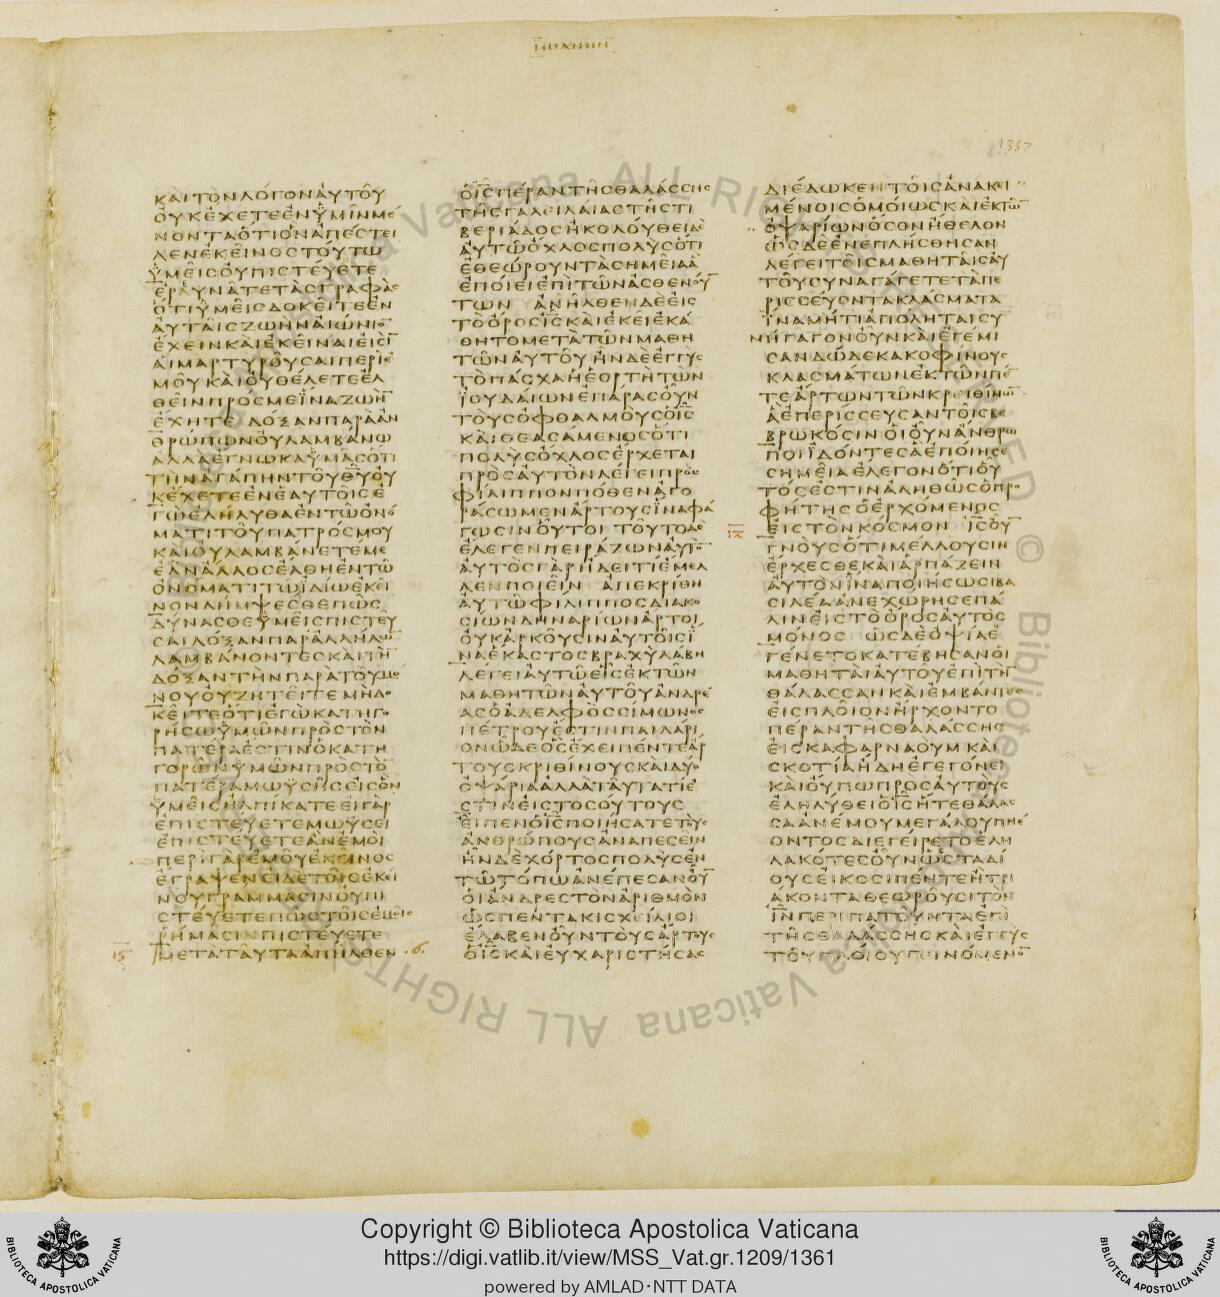 ΙΩΑΝΗΝ
1357
ΚΑΙΤΟΝΛΟΓΟΝΑΥΤΟΥ
ΟΥΚΕΧΕΤΕΕΝΥΜΙΝΜΕ
ΝΟΝΤΑΟΤΙΟΝΑΠΕϹΤΕΙ
ΛΕΝΕΚΕΙΝΟϹΤΟΥΤΩ
ΫΜΕΙϹΟΥΠΙϹΤΕΥΕΤΕ
ΕΡΑΥΝΑΤΕΤΑϹΓΡΑΦΑϹ
ΟΤΙΫΜΕΙϹΔΟΚΕΙΤΕΕΝ
ΑΥΤΑΙϹΖΩΗΝΑΙΩΝΙΟ̅
ΕΧΕΙΝΚΑΙΕΚΕΙΝΑΙΕΙϹΙ̅
ΑΙΜΑΡΤΥΡΟΥϹΑΙΠΕΡΙΕ
ΜΟΥΚΑΙΟΥΘΕΛΕΤΕΕΛ
ΘΕΙΝΠΡΟϹΜΕΪΝΑΖΩΗ̅
ΕΧΗΤΕ ΔΟΞΑΝΠΑΡΑΑΝ
ΘΡΩΠΩΝΟΥΛΑΜΒΑΝΩ
ΑΛΛΑΕΓΝΩΚΑΫΜΑϹΟΤΙ
ΤΗΝΑΓΑΠΗΝΤΟΥΘ̅Υ̅ΟΥ
ΚΕΧΕΤΕΕΝΕΑΥΤΟΙϹΕ
ΓΩΕΛΗΛΥΘΑΕΝΤΩΟΝΟ
ΜΑΤΙΤΟΥΠΑΤΡΟϹΜΟΥ
ΚΑΙΟΥΛΑΜΒΑΝΕΤΕΜΕ
ΕΑΝΑΛΛΟϹΕΛΘΗΕΝΤΩ
ΟΝΟΜΑΤΙΤΩΪΔΙΩΕΚΕΙ
ΝΟΝΛΗΜΨΕϹΘΕΠΩϹ
ΔΥΝΑϹΘΕΫΜΕΙϹΠΙϹΤΕΥ
ϹΑΙΔΟΞΑΝΠΑΡΑΛΛΗΛΩ̅
ΛΑΜΒΑΝΟΝΤΕϹΚΑΙΤΗ̅
ΔΟΞΑΝΤΗΝΠΑΡΑΤΟΥΜΟ
ΝΟΥΟΥΖΗΤΕΙΤΕΜΗΔΟ
ΚΕΙΤΕΟΤΙΕΓΩΚΑΤΗΓΟ
ΡΗϹΩΫΜΩΝΠΡΟϹΤΟΝ
ΠΑΤΕΡΑΕϹΤΙΝΟΚΑΤΗ
ΓΟΡΩΝΫΜΩΝΠΡΟϹΤΟ̅
ΠΑΤΕΡΑΜΩΫϹΗϹΕΙϹΟΝ
ΫΜΕΙϹΗΛΠΙΚΑΤΕΕΙΓΑΡ
ΕΠΙϹΤΕΥΕΤΕΜΩΫϹΕΙ
ΕΠΙϹΤΕΥΕΤΕΑΝΕΜΟΙ
ΠΕΡΙΓΑΡΕΜΟΥΕΚΕΙΝΟϹ
ΕΓΡΑΨΕΝΕΙΔΕΤΟΙϹΕΚΕΙ
ΝΟΥΓΡΑΜΜΑϹΙΝΟΥΠΙ
ϹΤΕΥΕΤΕΠΩϹΤΟΙϹΕΜΟΙϹ
ΡΗΜΑϹΙΝΠΙϹΤΕΥΕΤΕ
ΜΕΤΑΤΑΥΤΑΑΠΗΛΘΕΝ
ΟΙ̅Ϲ̅ΠΕΡΑΝΤΗϹΘΑΛΑϹϹΗϹ
ΤΗϹΓΑΛΕΙΛΑΙΑϹΤΗϹΤΙ
ΒΕΡΙΑΔΟϹΗΚΟΛΟΥΘΕΙΔΕ
ΑΥΤΩΟΧΛΟϹΠΟΛΥϹΟΤΙ
ΕΘΕΩΡΟΥΝΤΑϹΗΜΕΙΑΑ
ΕΠΟΙΕΙΕΠΙΤΩΝΑϹΘΕΝΟΥ̅
ΤΩΝ ΑΝΗΛΘΕΝΔΕΕΙϹ
ΤΟΟΡΟϹΙ̅Ϲ̅ΚΑΙΕΚΕΙΕΚΑ
ΘΗΤΟΜΕΤΑΤΩΝΜΑΘΗ
ΤΩΝΑΥΤΟΥΗΝΔΕΕΓΓΥϹ
ΤΟΠΑϹΧΑΗΕΟΡΤΗΤΩΝ
ΙΟΥΔΑΙΩΝΕΠΑΡΑϹΟΥΝ
ΤΟΥϹΟΦΘΑΛΜΟΥϹΟΙ̅Ϲ̅
ΚΑΙΘΕΑϹΑΜΕΝΟϹΟΤΙ
ΠΟΛΥϹΟΧΛΟϹΕΡΧΕΤΑΙ
ΠΡΟϹΑΥΤΟΝΛΕΓΕΙΠΡΟϹ
ΦΙΛΙΠΠΟΝΠΟΘΕΝΑΓΟ
ΡΑϹΩΜΕΝΑΡΤΟΥϹΪΝΑΦΑ
ΓΩϹΙΝΟΥΤΟΙ ΤΟΥΤΟΔΕ
ΕΛΕΓΕΝΠΕΙΡΑΖΩΝΑΥΤΟ̅
ΑΥΤΟϹΓΑΡΗΔΕΙΤΙΕΜΕΛ
ΛΕΝΠΟΙΕΙΝ ΑΠΕΚΡΙΘΗ
ΑΥΤΩΦΙΛΙΠΠΟϹΔΙΑΚΟ
ϹΙΩΝΔΗΝΑΡΙΩΝΑΡΤΟΙ
ΟΥΚΑΡΚΟΥϹΙΝΑΥΤΟΙϹΪ
ΝΑΕΚΑϹΤΟϹΒΡΑΧΥΛΑΒΗ
ΛΕΓΕΙΑΥΤΩΕΙϹΕΚΤΩΝ
ΜΑΘΗΤΩΝΑΥΤΟΥΑΝΔΡΕ
ΑϹΟΑΔΕΛΦΟϹϹΙΜΩΝΟϹ
ΠΕΤΡΟΥΕϹΤΙΝΠΑΙΔΑΡΙ
ΟΝΩΔΕΟϹΕΧΕΙΠΕΝΤΕΑΡ
ΤΟΥϹΚΡΙΘΙΝΟΥϹΚΑΙΔΥΟ
ΟΨΑΡΙΑΑΛΛΑΤΑΥΤΑΤΙΕ
ϹΤΙΝΕΙϹΤΟϹΟΥΤΟΥϹ
ΕΙΠΕΝΟΙ̅Ϲ̅ΠΟΙΗϹΑΤΕΤΟΥϹ
ΑΝΘΡΩΠΟΥϹΑΝΑΠΕϹΕΙΝ
ΗΝΔΕΧΟΡΤΟϹΠΟΛΥϹΕΝ
ΤΩΤΟΠΩΑΝΕΠΕϹΑΝΟΥ̅
ΟΙΑΝΔΡΕϹΤΟΝΑΡΙΘΜΟΝ
ΩϹΠΕΝΤΑΚΙϹΧΕΙΛΙΟΙ
ΕΛΑΒΕΝΟΥΝΤΟΥϹΑΡΤΟΥϹ
ΟΙ̅Ϲ̅ΚΑΙΕΥΧΑΡΙϹΤΗϹΑϹ
ΔΙΕΔΩΚΕΝΤΟΙϹΑΝΑΚΕΙ
ΜΕΝΟΙϹΟΜΟΙΩϹΚΑΙΕΚΤΩ̅
ΟΨΑΡΙΩΝΟϹΟΝΗΘΕΛΟΝ
ΩϹΔΕΕΝΕΠΛΗϹΘΗϹΑΝ
ΛΕΓΕΙΤΟΙϹΜΑΘΗΤΑΙϹΑΥ
ΤΟΥϹΥΝΑΓΑΓΕΤΕΤΑΠΕ
ΡΙϹϹΕΥΟΝΤΑΚΛΑϹΜΑΤΑ
ΪΝΑΜΗΤΙΑΠΟΛΗΤΑΙϹΥ
ΝΗΓΑΓΟΝΟΥΝΚΑΙΕΓΕΜΙ
ϹΑΝΔΩΔΕΚΑΚΟΦΙΝΟΥϹ
ΚΛΑϹΜΑΤΩΝΕΚΤΩΝΠΕ̅
ΤΕΑΡΤΩΝΤΩΝΚΡΕΙΘΙΝΩ̅
ΑΕΠΕΡΙϹϹΕΥϹΑΝΤΟΙϹΒΕ
ΒΡΩΚΟϹΙΝ ΟΙΟΥΝΑΝΘΡΩ
ΠΟΙΪΔΟΝΤΕϹΑΕΠΟΙΗϹΕ
ϹΗΜΕΙΑΕΛΕΓΟΝΟΤΙΟΥ
ΤΟϹΕϹΤΙΝΑΛΗΘΩϹΟΠΡΟ
ΦΗΤΗϹΟΕΡΧΟΜΕΝΟϹ
ΕΙϹΤΟΝΚΟϹΜΟΝ Ι̅Ϲ̅ΟΥ̅
ΓΝΟΥϹΟΤΙΜΕΛΛΟΥϹΙΝ
ΕΡΧΕϹΘΕΚΑΙΑΡΠΑΖΕΙΝ
ΑΥΤΟΝΪΝΑΠΟΙΗϹΩϹΙΒΑ
ϹΙΛΕΑΑΝΕΧΩΡΗϹΕΠΑ
ΛΙΝΕΙϹΤΟΟΡΟϹΑΥΤΟϹ
ΜΟΝΟϹ ΩϹΔΕΟΨΙΑΕ
ΓΕΝΕΤΟΚΑΤΕΒΗϹΑΝΟΙ
ΜΑΘΗΤΑΙΑΥΤΟΥΕΠΙΤΗ̅
ΘΑΛΑϹϹΑΝΚΑΙΕΜΒΑΝΤΕϹ
ΕΙϹΠΛΟΙΟΝΗΡΧΟΝΤΟ
ΠΕΡΑΝΤΗϹΘΑΛΑϹϹΗϹ
ΕΙϹΚΑΦΑΡΝΑΟΥΜΚΑΙ
ϹΚΟΤΙΑΗΔΗΕΓΕΓΟΝΕΙ
ΚΑΙΟΥΠΩΠΡΟϹΑΥΤΟΥϹ
ΕΛΗΛΥΘΕΙΟΙ̅Ϲ̅ΗΤΕΘΑΛΑϹ
ϹΑΑΝΕΜΟΥΜΕΓΑΛΟΥΠΝΕ
ΟΝΤΟϹΔΙΕΓΕΙΡΕΤΟΕΛΗ
ΛΑΚΟΤΕϹΟΥΝΩϹΤΑΔΙ
ΟΥϹΕΙΚΟϹΙΠΕΝΤΕΗΤΡΙ
ΑΚΟΝΤΑΘΕΩΡΟΥϹΙΤΟΝ
Ι̅Ν̅ΠΕΡΙΠΑΤΟΥΝΤΑΕΠΙ
ΤΗϹΘΑΛΑϹϹΗϹΚΑΙΕΓΓΥϹ
ΤΟΥΠΛΟΙΟΥΓΕΙΝΟΜΕΝΟ̅
Copyright © Biblioteca Apostolica Vaticana
https://digi.vatlib.it/view/MSS_Vat.gr.1209/1361
powered by AMLAD·NTT DATA
BIBLIOTECA APOSTOLICA VATICANA
BIBLIOTECA APOSTOLICA VATICANA